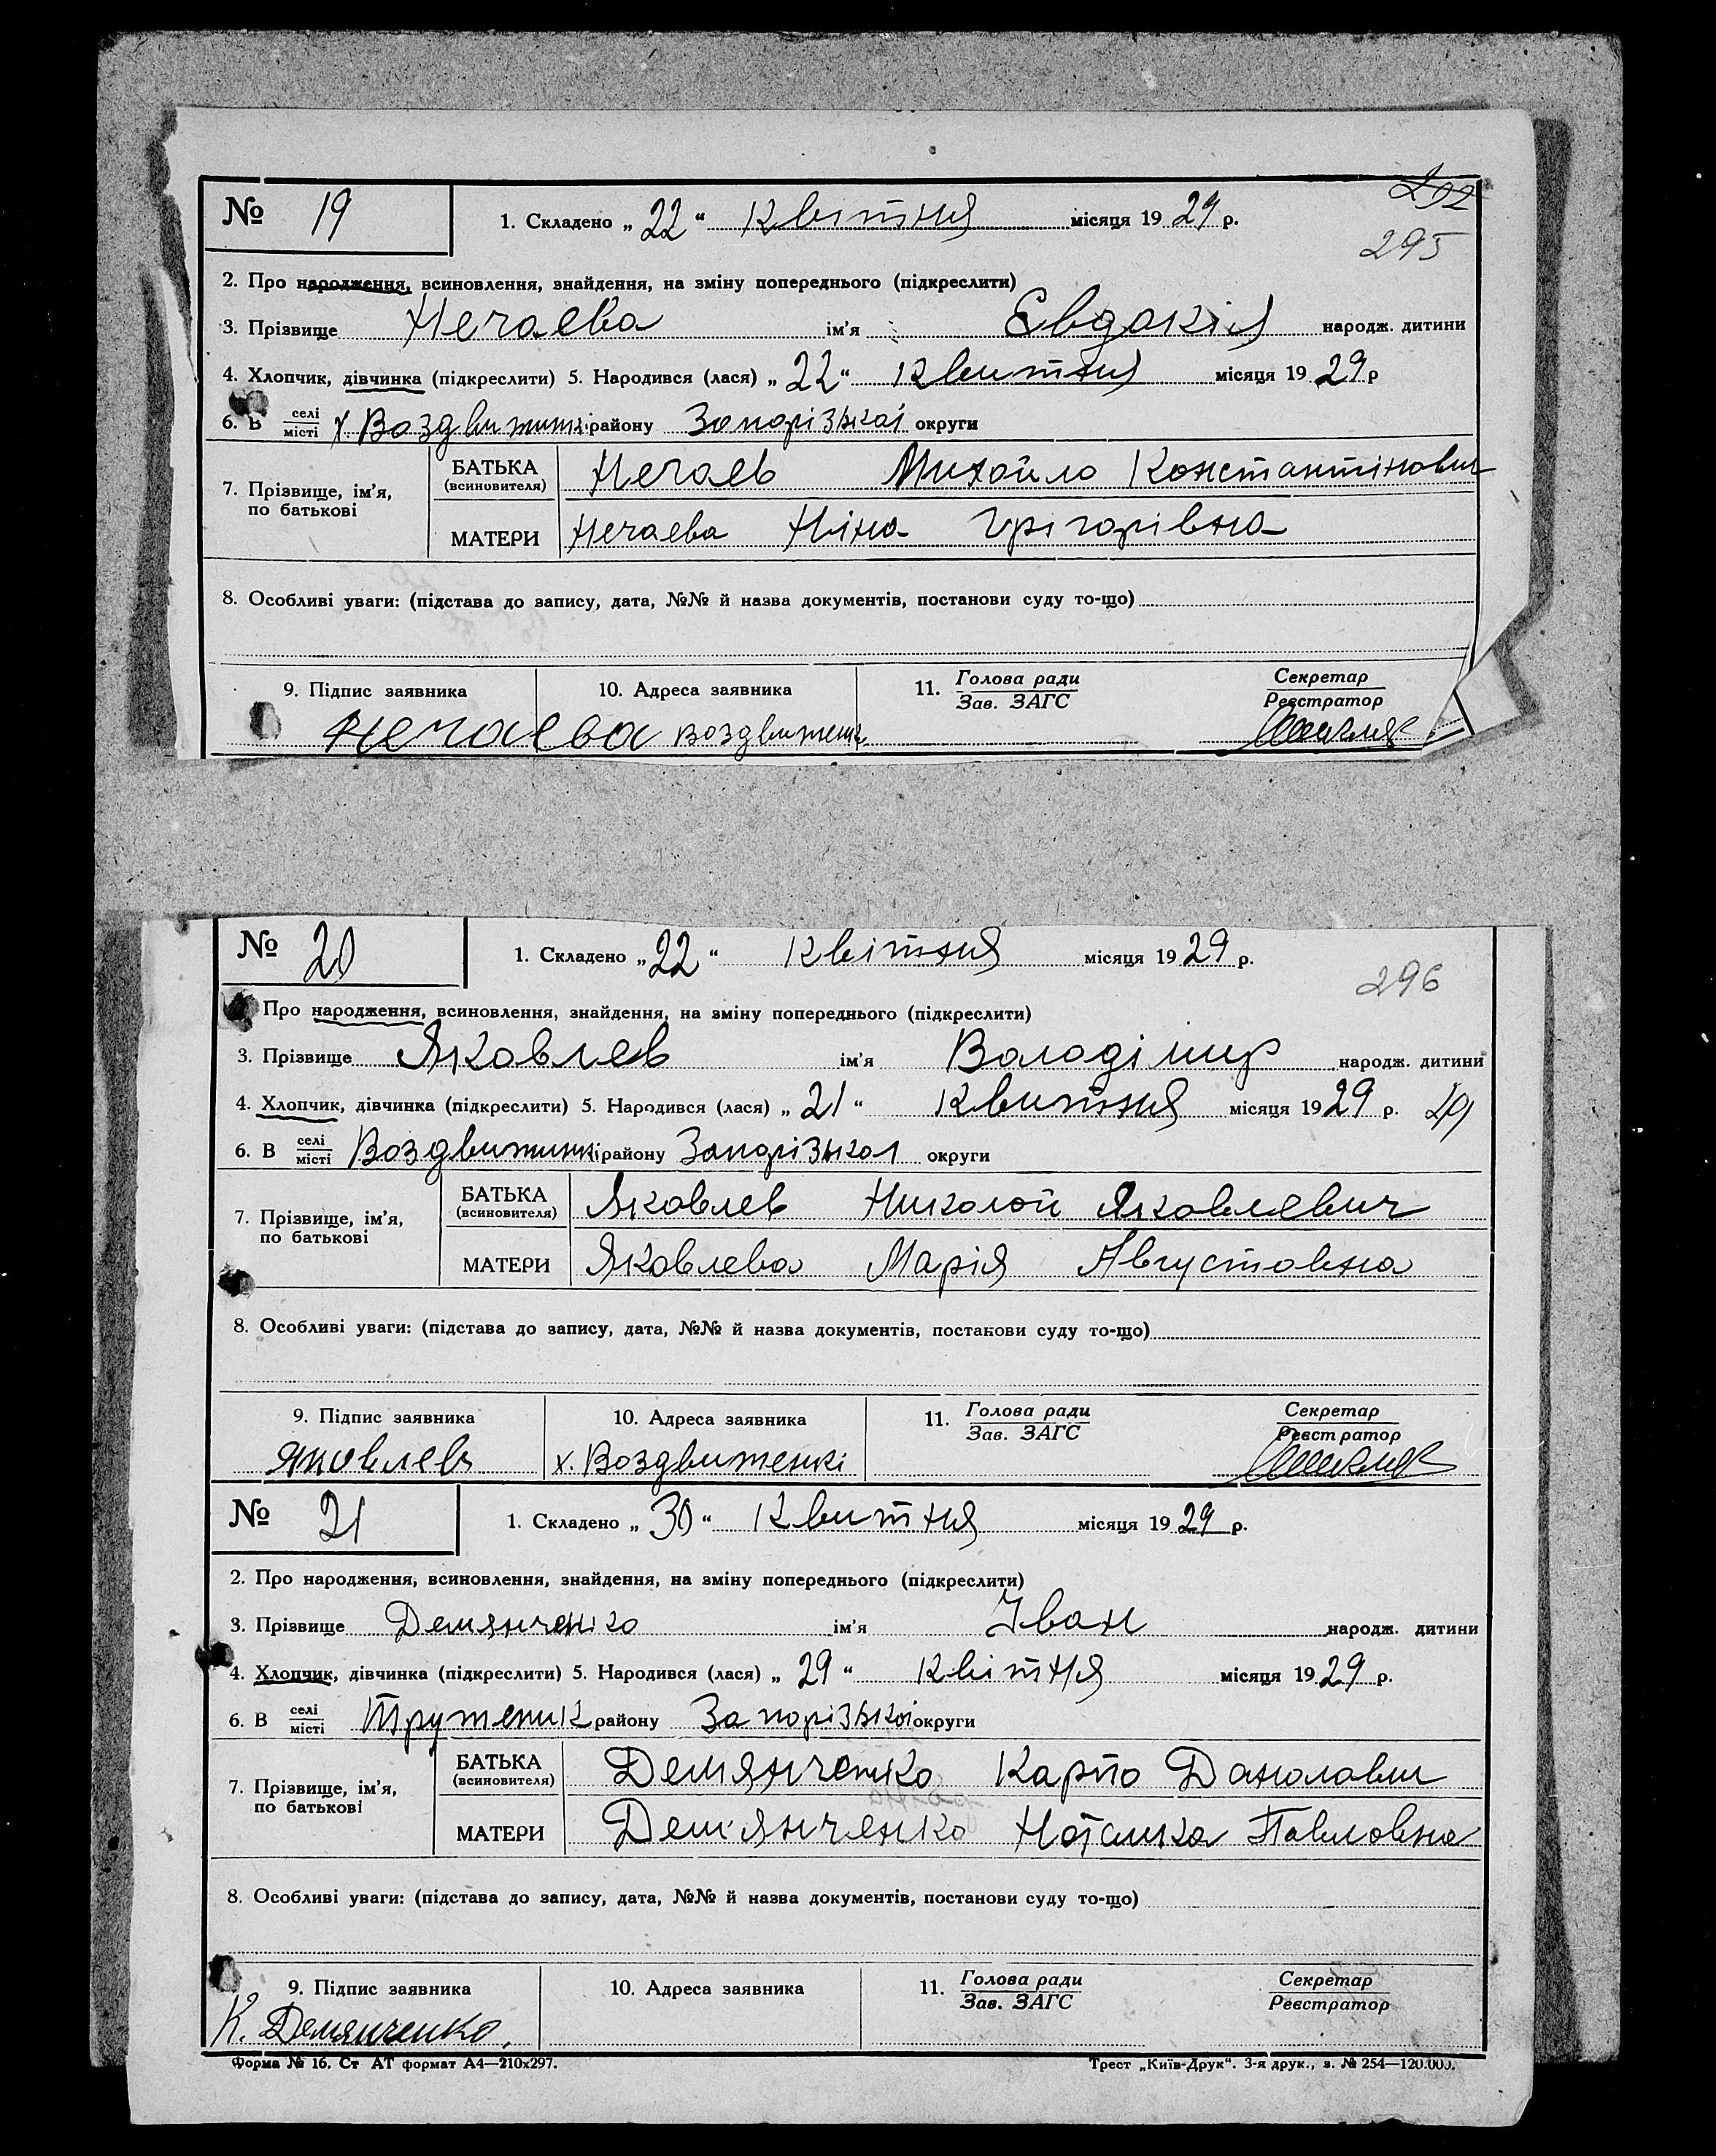 292
№ 19 1. Складено „22“ Квітня місяця 1929 р.
295
2. Про народження, всиновлення, знайдення, на зміну попереднього (підкреслити)
3. Прізвище Нечаева ім'я Евдокія народж. дитини
4. Хлопчик, дівчинка (підкреслити) 5. Народився (лася) „22“ Квитня місяця 1929 р
6. В селі/місті х Воздвижинкі району Запорізької округи
7. Прізвище, ім'я, по батькові
БАТЬКА (всиновителя) Нечаев Михайло Константінович
МАТЕРИ Нечаева Ніна Грігорівна
8. Особливі уваги: (підстава до запису, дата, №№ й назва документів, постанови суду то-що)
9. Підпис заявника 10. Адреса заявника 11. Голова ради/Зав. ЗАГС Секретар/Реєстратор
Нечаева Воздвиженк
№ 20 1. Складено „22“ Квітня місяця 1929 р.
296
Про народження, всиновлення, знайдення, на зміну попереднього (підкреслити)
3. Прізвище Яковлев ім'я Володімир народж. дитини
4. Хлопчик, дівчинка (підкреслити) 5. Народився (лася) „21“ Квитня місяця 1929 р.
6. В селі/місті Воздвижинкі району Запорізької округи
7. Прізвище, ім'я, по батькові
БАТЬКА (всиновителя) Яковлев Николой Яковлевич
МАТЕРИ Яковлева Марія Августовна
8. Особливі уваги: (підстава до запису, дата, №№ й назва документів, постанови суду то-що)
9. Підпис заявника 10. Адреса заявника 11. Голова ради/Зав. ЗАГС Секретар/Реєстратор
Яковлев х. Воздвиженкі
№ 21 1. Складено „30“ Квитня місяця 1929 р.
2. Про народження, всиновлення, знайдення, на зміну попереднього (підкреслити)
3. Прізвище Демянченко ім'я Іван народж. дитини
4. Хлопчик, дівчинка (підкреслити) 5. Народився (лася) „29“ Квітня місяця 1929 р.
6. В селі/місті Труженик району Запорізької округи
7. Прізвище, ім'я, по батькові
БАТЬКА (всиновителя) Демянченко Карпо
МАТЕРИ Дем'янченко Наталка Павловна
8. Особливі уваги: (підстава до запису, дата, №№ й назва документів, постанови суду то-що)
9. Підпис заявника 10. Адреса заявника 11. Голова ради/Зав. ЗАГС Секретар/Реєстратор
К. Демянченко
Форма № 16. Ст АТ формат А4—210х297. Трест „Київ-Друк“. 3-я друк., з. № 254—120.000.